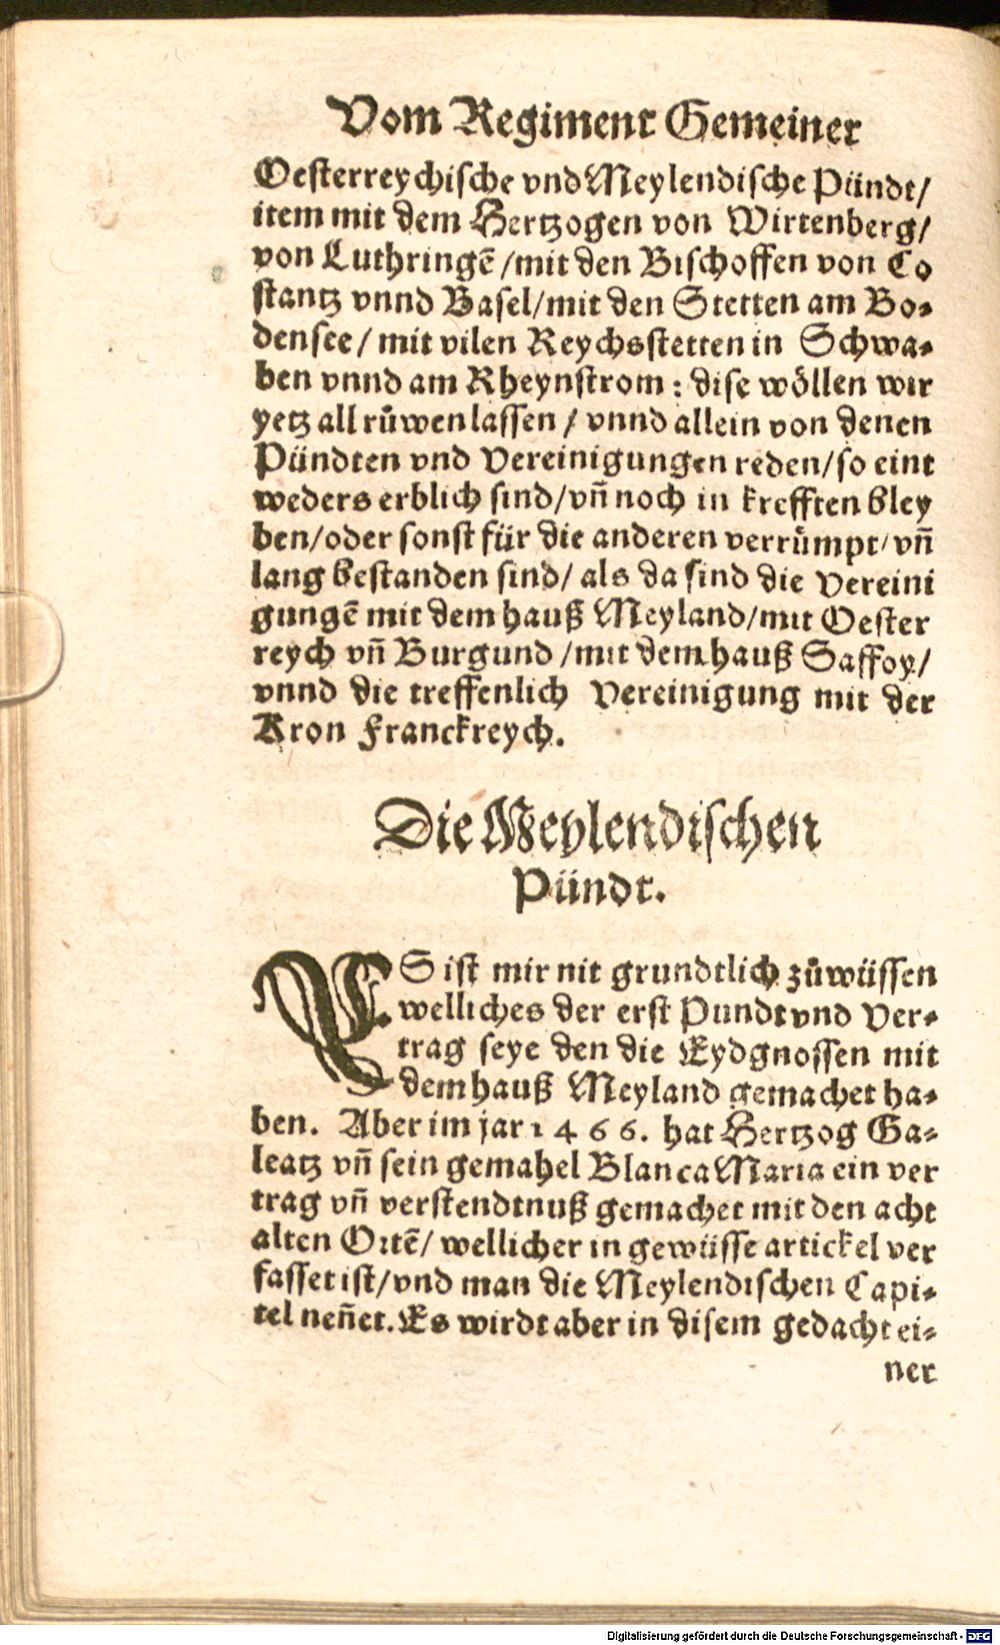 Vom Regiment Gemeiner
Oesterreychische vnd Meylendische Pündt/
item mit dem Hertzogen von Wirtenberg/
von Luthringẽ /mit den Bischoffen von Co
stantz vnnd Basel/mit den Stetten am Bo⸗
densee/ mit vilen Reychsstetten in Schwa⸗
ben vnnd am Rheynstrom : dise wöllen wir
yetz all růwen lassen / vnnd allein von denen
Pündten vnd Vereinigungen reden/so eint
weders erblich sind/vñ noch in krefften bley
ben/oder sonst für die anderen verrümpt/vñ
lang bestanden sind/ als da sind die Vereini
gungẽ mit dem hauß Meyland/mit Oester
reych vñ Burgund /mit dem hauß Saffoy/
vnnd die treffenlich Vereinigung mit der
Kron Franckreych.
Die Meylendischen
Pündt.
ES ist mir nit grundtlich zůwüssen
welliches der erst Pundt vnd Ver⸗
trag seye den die Eydgnossen mit
dem hauß Meyland gemachet ha⸗
ben. Aber im jar 1466. hat Hertzog Ga⸗
leatz vñ sein gemahel Blanca Maria ein ver
trag vñ verstendtnuß gemachet mit den acht
alten Ortẽ/ wellicher in gewüsse artickel ver
fasset ist/vnd man die Meylendischen Capi⸗
tel neñet. Es wirdt aber in disem gedacht ei⸗
ner
Digitalisierung gefördert durch die Deutsche Forschungsgemeinschaft - DFG